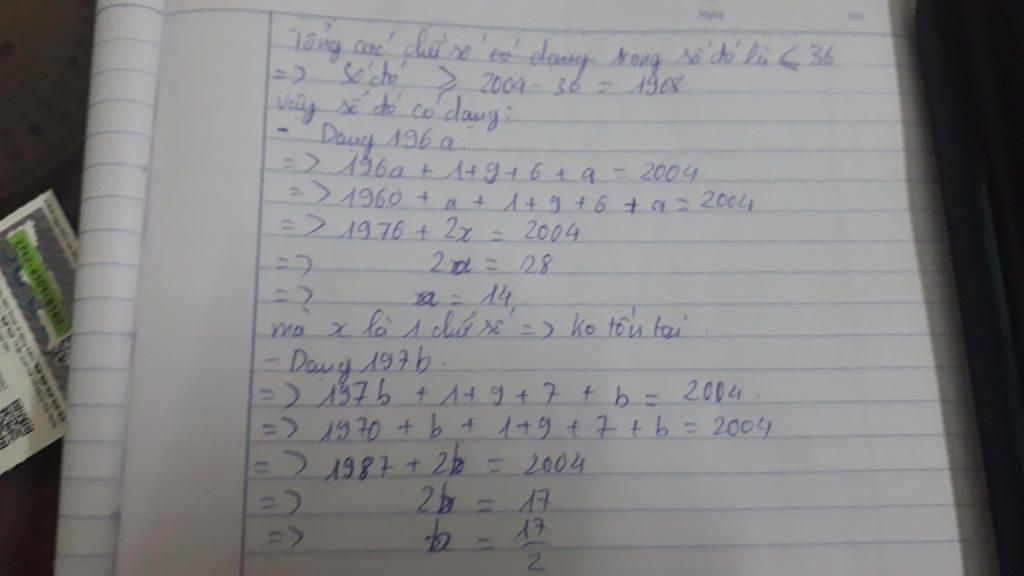 Tổng các chữ số có dạng trong số đó là ≤ 36
=> Số đó ≥ 2004 - 36 = 1968
Vậy số đó có dạng:
- Dạng 196a.
=> 196a + 1+9+6 + a = 2004
=> 1960 + a + 1+9+6 + a = 2004
=> 1976 + 2x = 2004
=> 2a = 28
=> a = 14
mà x là 1 chữ số => Ko tồn tại.
- Dạng 197b.
=> 197b + 1+9+7+b = 2004.
=> 1970 + b + 1+9+7+b = 2004
=> 1987 + 2b = 2004
=> 2b = 17
=> b = 17/2